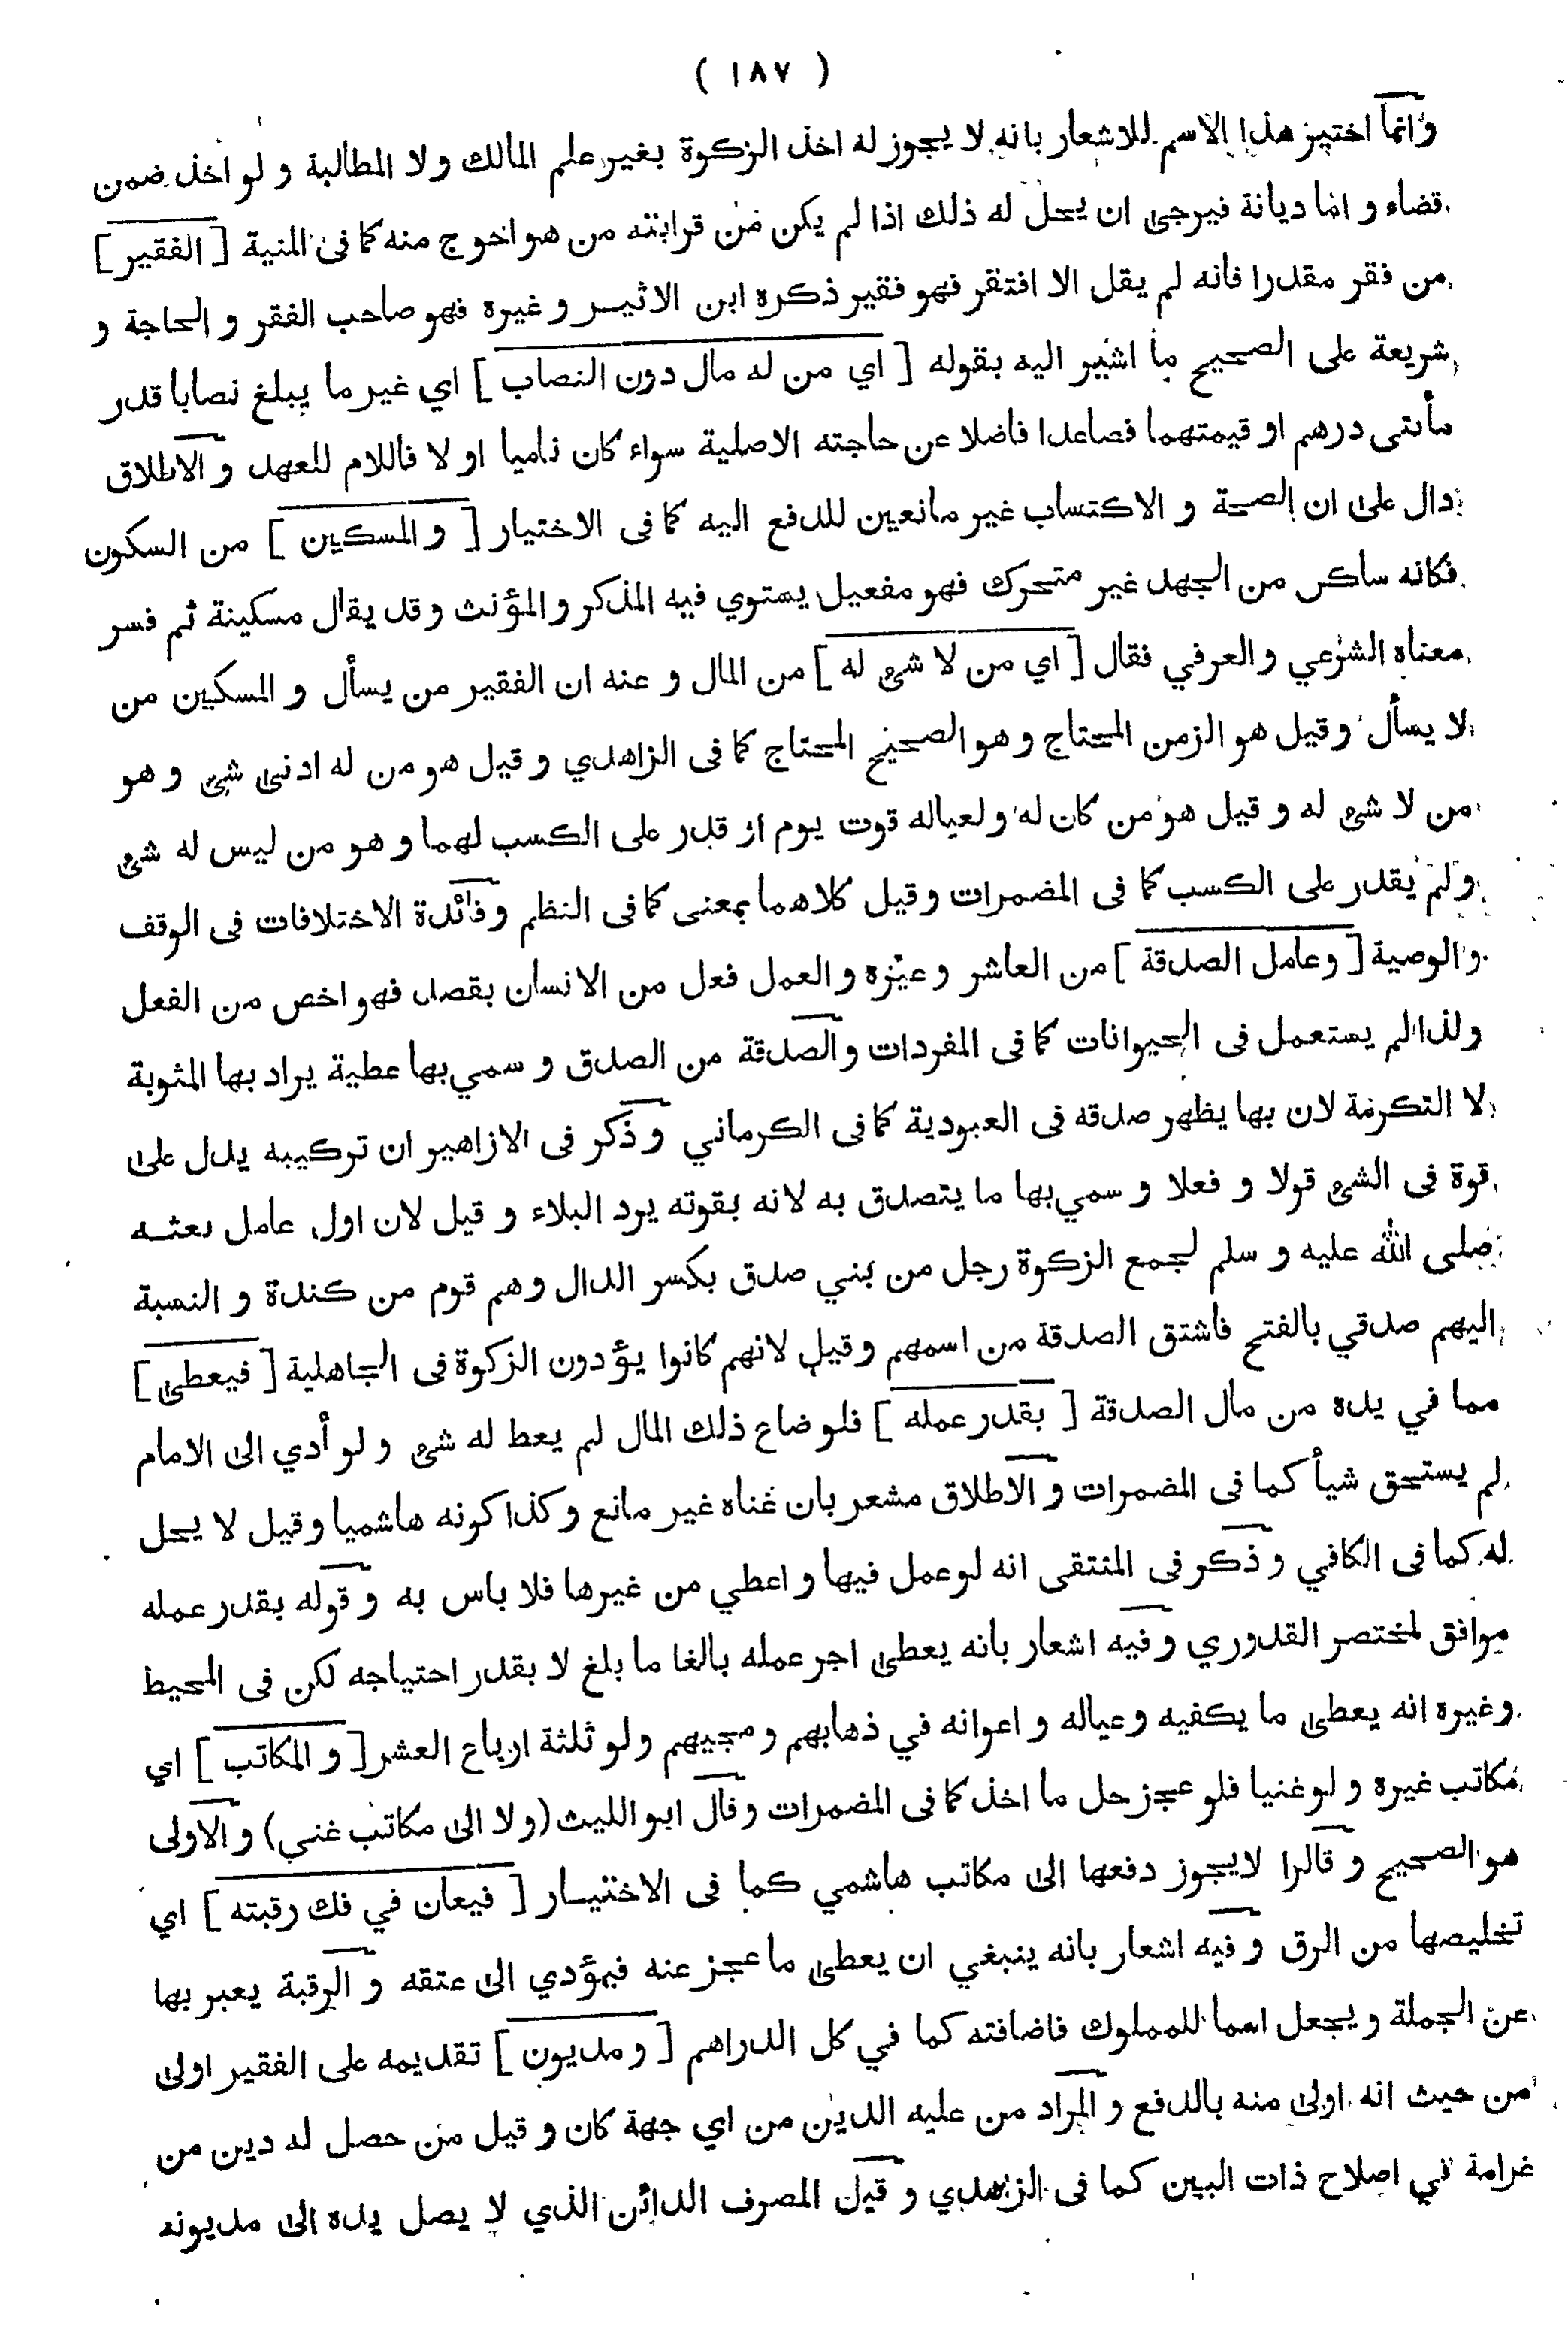 ( ١٨٧ )
وانما اختير هذا الاسم للاشعار بانه لا يجوز له اخذ الزكوة بغير علم المالك ولا المطالبة و لو اخذ ضمن
قضاء و اما ديانة فيرجى ان يحل له ذلك اذا لم يكن من قرابته من هو احوج منه كما فى المنية [ الفقير ]
من فقر مقدرا فانه لم يقل الا افتقر فهو فقير ذكره ابن الاثير و غيره فهو صاحب الفقر و الحاجة و
شريعة على الصحيح ما اشير اليه بقوله [ اي من له مال دون النصاب ] اي غير ما يبلغ نصابا قدر
مأتى درهم او قيمتهما فصاعدا فاضلا عن حاجته الاصلية سواء كان ناميا او لا فاللام للعهد و الاطلاق
دال على ان الصحة و الاكتساب غير مانعين للدفع اليه كما فى الاختيار [ و المسكين ] من السكون
فكانه ساكن من الجهد غير متحرك فهو مفعيل يستوي فيه المذكر و المؤنث و قد يقال مسكينة ثم فسر
معناه الشرعي و العرفي فقال [ اي من لا شئ له ] من المال و عنه ان الفقير من يسأل و المسكين من
لا يسأل و قيل هو الزمن المحتاج و هو الصحيح المحتاج كما فى الزاهدي و قيل هو من له ادنى شئ و هو
من لا شئ له و قيل هو من كان له و لعياله قوت يوم او قدر على الكسب لهما و هو من ليس له شئ
و لم يقدر على الكسب كما فى المضمرات و قيل كلاهما بمعنى كما فى النظم و فائدة الاختلافات فى الوقف
و الوصية [ و عامل الصدقة ] من العاشر و غيره و العمل فعل من الانسان بقصد فهو اخص من الفعل
و لذا لم يستعمل فى الحيوانات كما فى المفردات و الصدقة من الصدق و سمي بها عطية يراد بها المثوبة
لا التكرمة لان بها يظهر صدقه فى العبودية كما فى الكرماني و ذكر فى الازاهير ان تركيبه يدل على
قوة فى الشئ قولا و فعلا و سمي بها ما يتصدق به لانه بقوته يرد البلاء و قيل لان اول عامل بعثه
صلى الله عليه و سلم لجمع الزكوة رجل من بني صدق بكسر الدال و هم قوم من كندة و النسبة
اليهم صدقي بالفتح فاشتق الصدقة من اسمهم و قيل لانهم كانوا يؤدون الزكوة فى الجاهلية [ فيعطى ]
مما في يده من مال الصدقة [ بقدر عمله ] فلو ضاع ذلك المال لم يعط له شئ و لو أدي الى الامام
لم يستحق شيأ كما فى المضمرات و الاطلاق مشعر بان غناه غير مانع و كذا كونه هاشميا و قيل لا يحل
له كما فى الكافي و ذكر فى المنتقى انه لو عمل فيها و اعطي من غيرها فلا باس به و قوله بقدر عمله
موافق لمختصر القدوري و فيه اشعار بانه يعطى اجر عمله بالغا ما بلغ لا بقدر احتياجه لكن فى المحيط
و غيره انه يعطى ما يكفيه و عياله و اعوانه في ذهابهم و مجيهم و لو ثلثة ارباع العشر [ و المكاتب ] اي
مكاتب غيره و لو غنيا فلو عجز حل ما اخذ كما فى المضمرات و قال ابو الليث (و لا الى مكاتب غني) و الاولى
هو الصحيح و قالوا لا يجوز دفعها الى مكاتب هاشمي كما فى الاختيار [ فيعان في فك رقبته ] اي
تخليصها من الرق و فيه اشعار بانه ينبغي ان يعطى ما عجز عنه فيؤدي الى عتقه و الرقبة يعبر بها
عن الجملة و يجعل اسما للمملوك فاضافته كما في كل الدراهم [ و مديون ] تقديمه على الفقير اولى
من حيث انه اولى منه بالدفع و المراد من عليه الدين من اي جهة كان و قيل من حصل له دين من
غرامة في اصلاح ذات البين كما فى الزاهدي و قيل المصرف الدائن الذي لا يصل يده الى مديونه